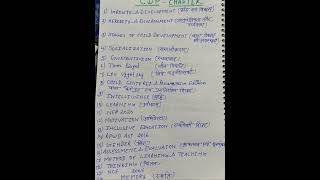 CDP - CHAPTER
1) GROWTH & DEVELOPMENT
2) HEREDITY & ENVIRONMENT
3) STAGES OF CHILD DEVELOPMENT
4) SOCIALIZATION (समाजीकरण)
5)
6) Jean Piaget (जीन पियाजे)
7) LEV Vygotsky
8) CHILD CENTERED & PROGRESSIVE EDUCATION
9) INTELLIGENCE (बुद्धि)
10) LEARNING (अधिगम)
11) NEP 2020
12) MOTIVATION (अभिप्रेरणा)
13) INCLUSIVE EDUCATION (समावेशी शिक्षा)
14) RPWD ACT 2016
15) GENDER (लिंग)
16) ASSESSMENT & EVALUATION
17) METHOD OF LEARNING & TEACHING
18) THINKING (चिंतन)
19) NCF 2005
20) MEMORY (स्मृति)